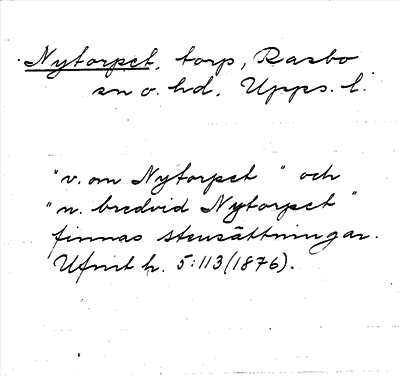 Nytorpet, torp, Rasbo
sn o. hd. Upps. l.
"v. om Nytorpet" och
"n. bredvid Nytorpet"
finnas stensättningar.
Ufmt h. 5:113 (1876).